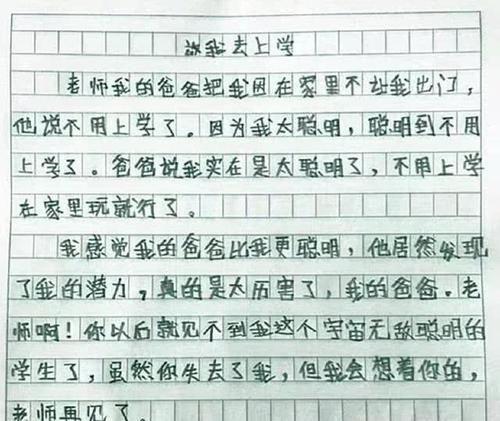 放我去上学
老师我的爸爸把我因在家里不让我出门，
他说不用上学了。因为我太聪明，聪明到不用
上学了。爸爸说我实在是太聪明了，不用上学
在家里玩就行了。
我感觉我的爸爸比我更聪明，他居然发现
了我的潜力，真的是太厉害了，我的爸爸。老
师啊！你以后就见不到我这个宇宙无敌聪明的
学生了，虽然你失去了我，但我会想着你的，
老师再见了。